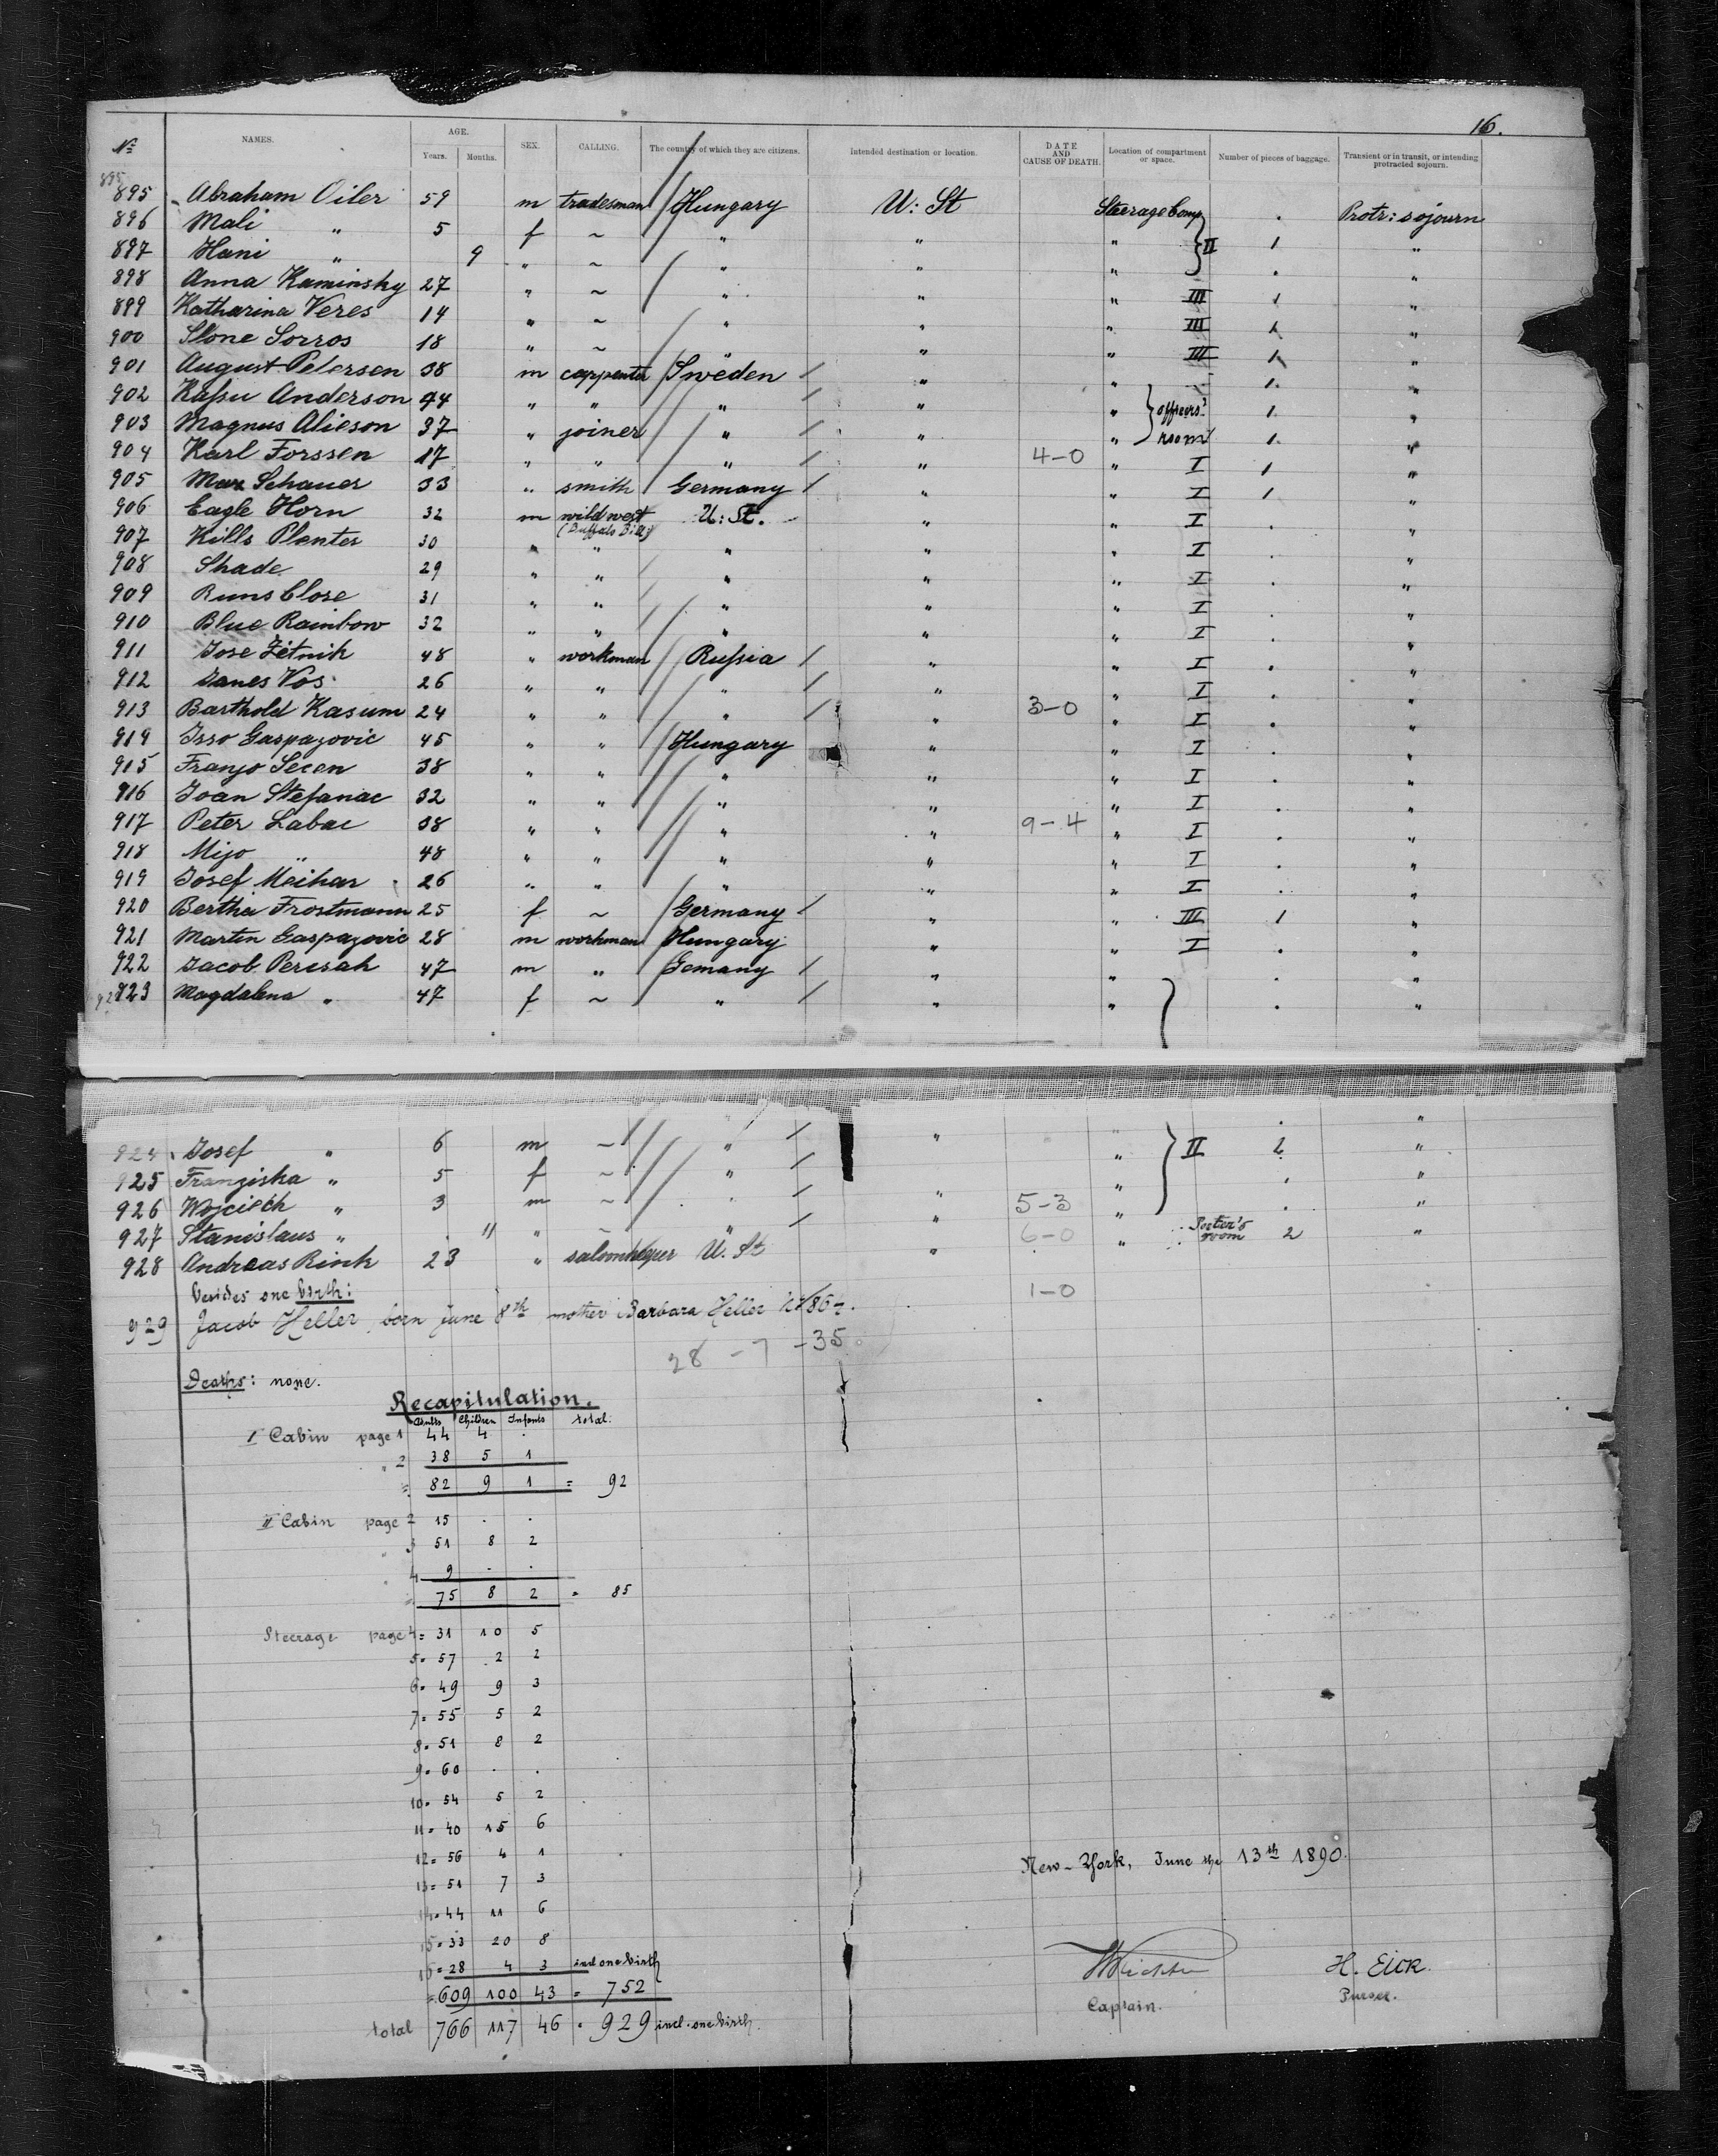 16.
Nº NAMES. AGE. Years. Months. SEX. CALLING. The country of which they are citizens. Intended destination or location. DATE AND CAUSE OF DEATH. Location of compartment or space. Number of pieces of baggage. Transient or in transit, or intending protracted sojourn.
895
895 Abraham Oiler 59 m tradesman Hungary U: St Steerage Comp . Protr: sojourn
896 Mali " 5 f ~ " " " } II 1 "
897 Hani " 9 " ~ " " " . "
898 Anna Kaminsky 27 " ~ " " " III 1 "
899 Katharina Veres 14 " ~ " " " III 1 "
900 Slone Sorros 18 " ~ " " " III 1 "
901 August Petersen 38 m carpenter Sweden / " " 1. "
902 Kassu Anderson 44 " " " / " " } officers' 1 "
903 Magnus Alieson 37 " joiner " / " " room 1. "
904 Karl Forssen 17 " " " / " 4-0 " I 1 "
905 Max Schauer 33 " smith Germany / " " I 1 "
906 Eagle Horn 32 m wild west (Buffalo Bill) U: St. " " I . "
907 Kills Plenter 30 " " " " " I . "
908 Shade 29 " " " " " I . "
909 Runs Close 31 " " " " " I . "
910 Blue Rainbow 32 " " " " " I . "
911 Jose Zitnik 48 " workman Russia / " " I . "
912 Janes Vos 26 " " " / " " I . "
913 Barthold Kasum 24 " " " / " 3-0 " I . "
914 Isso Gaspazovic 45 " " Hungary " " I . "
915 Franjo Secen 38 " " " " " I . "
916 Joan Stefanac 32 " " " " " I . "
917 Peter Labac 38 " " " " 9-4 " I . "
918 Mijo " 48 " " " " " I . "
919 Josef Meihar 26 " " " " " I . "
920 Bertha Frostmann 25 f ~ Germany / " " III 1 "
921 Martin Gaspazovic 28 m workman Hungary " " I . "
922 Jacob Peresah 47 m " Gemany / " " . "
923 Magdalena " 47 f ~ " / " " } . "
924 Josef " 6 m ~ " / " " } II 2 "
925 Franziska " 5 f ~ " / " . "
926 Wojciech " 3 m ~ " / " 5-3 " . "
927 Stanislaus " 11 " ~ " / " 6-0 "
928 Andreas Rink 23 " saloonkeeper U. St " " Porter's room 2 "
besides one birth: 1-0
929 Jacob Heller, born june 8th mother Barbara Heller
28 - 7 - 35
Deaths: none.
Recapitulation.
Adults Children Infants total:
I Cabin page 1 44 4 .
" 2 38 5 1
= 82 9 1 = 92
II Cabin page 2 15 . .
" 3 51 8 2
4 9 . .
= 75 8 2 = 85
Steerage page 4 = 31 10 5
5 = 57 2 2
6 = 49 9 3
7 = 55 5 2
8 = 51 8 2
9 = 60 . .
10 = 54 5 2
11 = 40 15 6
12 = 56 4 1
13 = 51 7 3
14 = 44 11 6
15 = 33 20 8
16 = 28 4 3 incl one birth
= 609 100 43 = 752
total 766 117 46 = 929 incl. one birth.
New-York, June the 13th 1890.
H. Eick.
Captain. Purser.